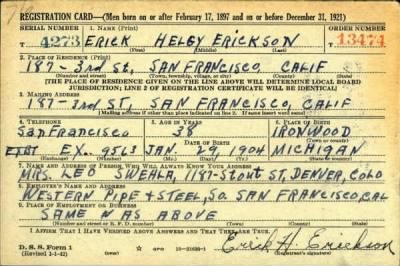 REGISTRATION CARD—(Men born on or after February 17, 1897 and on or before December 31, 1921)
SERIAL NUMBER 1. NAME (Print) ORDER NUMBER
T 4273 ERICK HELGY ERICKSON 13474
(First) (Middle) (Last)
2. PLACE OF RESIDENCE (Print)
187-3rd St, SAN FRANCISCO, CALIF
(Number and street) (Town, township, village, or city) (County) (State)
[THE PLACE OF RESIDENCE GIVEN ON THE LINE ABOVE WILL DETERMINE LOCAL BOARD
JURISDICTION; LINE 2 OF REGISTRATION CERTIFICATE WILL BE IDENTICAL]
3. MAILING ADDRESS
187-3rd ST, SAN FRANCISCO, CALIF
[Mailing address if other than place indicated on line 2. If same insert word same]
4. TELEPHONE 5. AGE IN YEARS 6. PLACE OF BIRTH
San Francisco 38 IRONWOOD
DATE OF BIRTH
EX. 9563 JAN. 29, 1904 MICHIGAN
(Exchange) (Number) (Mo.) (Day) (Yr.) (State or country)
7. NAME AND ADDRESS OF PERSON WHO WILL ALWAYS KNOW YOUR ADDRESS
MRS. LEO SWEHLA, 1187-STOUT ST, DENVER, COLO
8. EMPLOYER'S NAME AND ADDRESS
WESTERN PIPE & STEEL, So. SAN FRANCISCO, CAL
9. PLACE OF EMPLOYMENT OR BUSINESS
SAME AS ABOVE
(Number and street or R. F. D. number) (Town) (County) (State)
I AFFIRM THAT I HAVE VERIFIED ABOVE ANSWERS AND THAT THEY ARE TRUE.
D. S. S. Form 1
(Revised 1-1-42) GPO
Erick H. Erickson